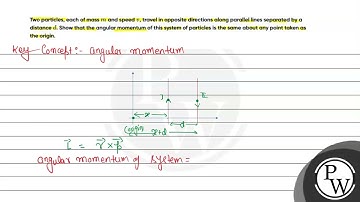 Two particles, each of mass m and speed v, travel in opposite directions along parallel lines separated by a
distance d. Show that the angular momentum of this system of particles is the same about any point taken as
the origin.
Key-Concept:- angular momentum
I
II
x
d
(origin)
x+d
L⃗ = r⃗ × p⃗
angular momentum of system =
P
W